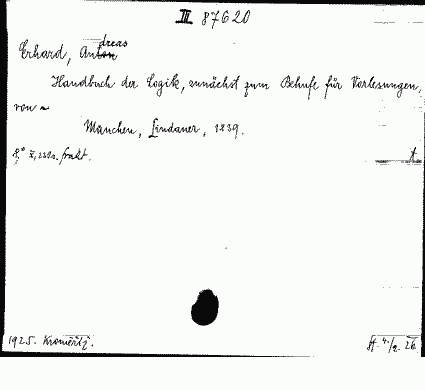 III 87620
Erhard, Andreas
Handbuch der Logik, zunächst zum Behufe für Vorlesungen,
von ~
München, Lindauer, 1839.
8,° X, 230 s.
1925. Kroměříž.
4./2. 26